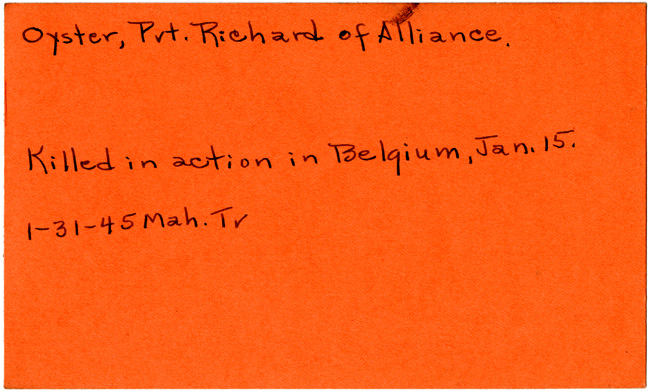 Oyster, Pvt. Richard of Alliance.
Killed in action in Belgium, Jan. 15.
1-31-45 Mah. Tr